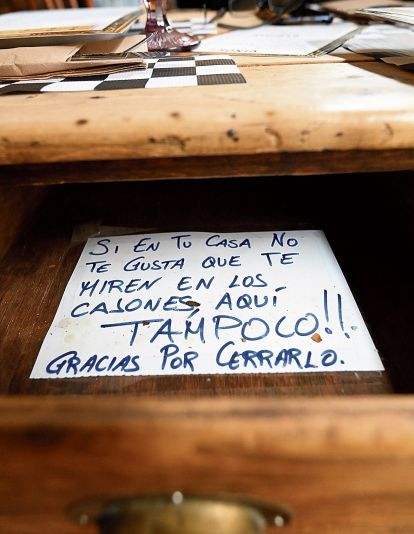 SI EN TU CASA NO
TE GUSTA QUE TE
MIREN EN LOS
CAJONES, AQUÍ
TAMPOCO!!
GRACIAS POR CERRARLO.